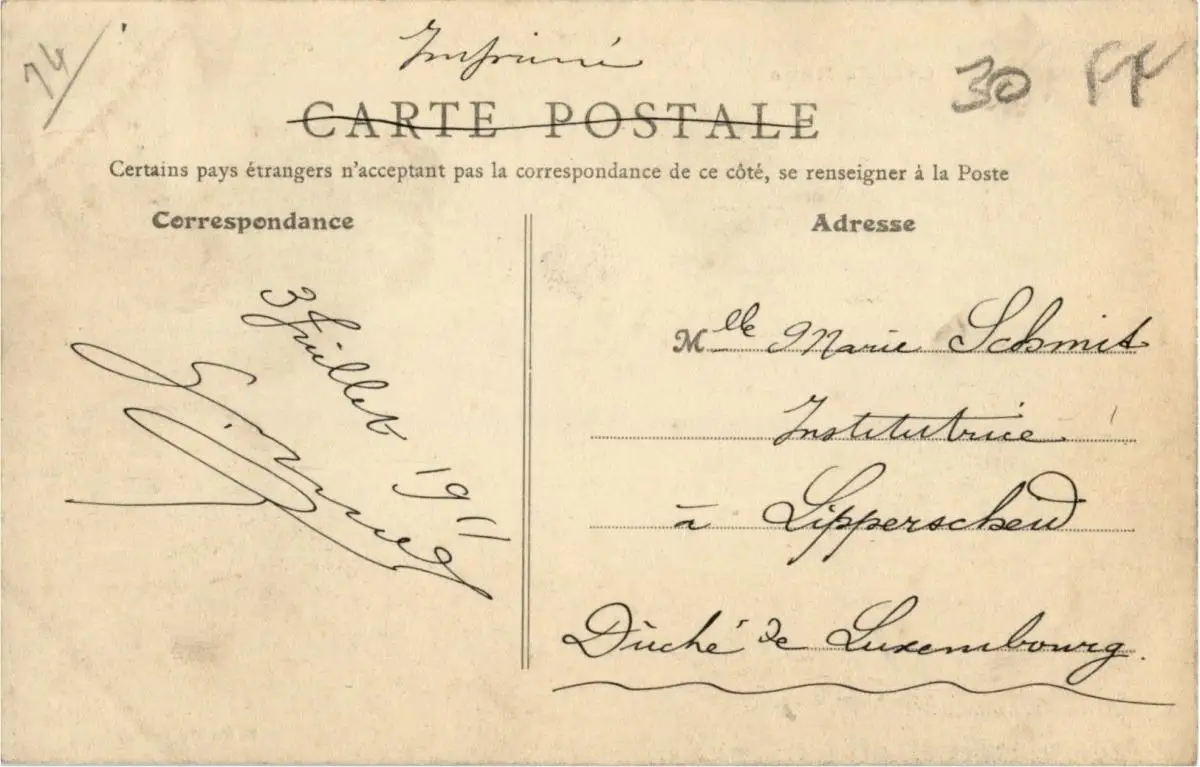 74/
Imprimé
30 FF
CARTE POSTALE
Certains pays étrangers n'acceptant pas la correspondance de ce côté, se renseigner à la Poste
Correspondance
Adresse
3 Juillet 1911
Mlle Marie Schmit
Institutrice
à Lipperscheid
Duché de Luxembourg.